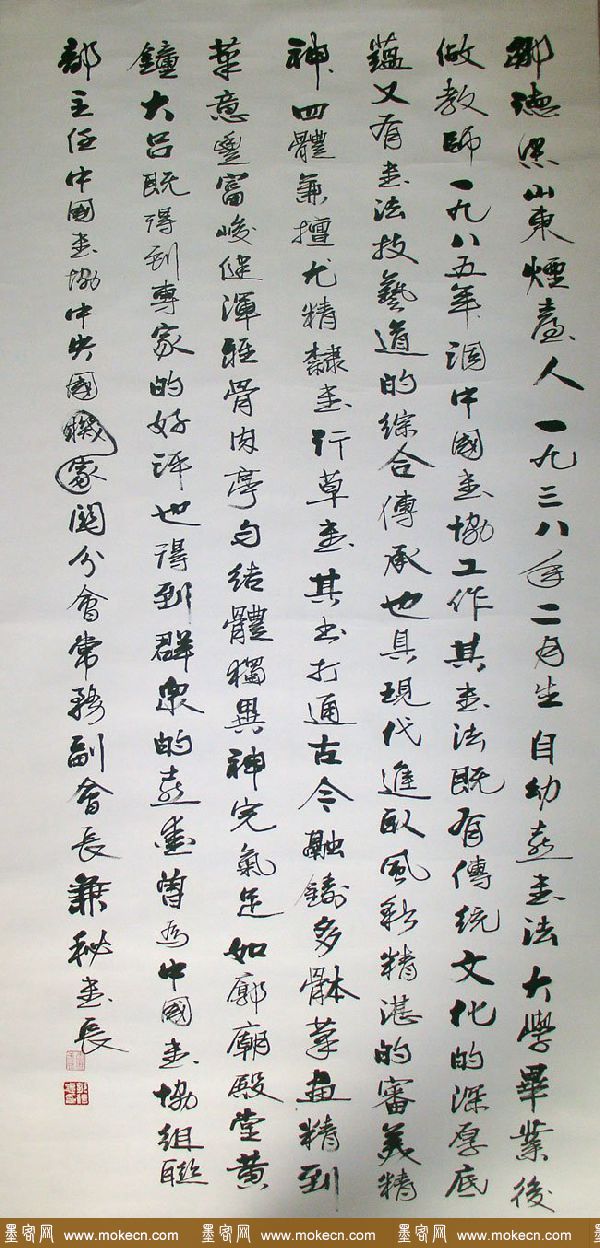 鄒德忠山東煙臺人一九三八年二月生自幼喜書法大學畢業後
做教師一九八五年調中國書協工作其書法既有傳統文化的深厚底
蘊又有書法技藝道的綜合傳承也具現代進取風彩精湛的審美精
神四體兼擅尤精隸書行草書其書打通古今融鑄多體筆畫精到
筆意豐富峻健渾雄骨肉亭勻結體獨異神完氣足如廊廟殿堂黃
鐘大呂既得到專家的好評也得到群眾的喜愛曾為中國書協組聯
部主任中國書協中央國機家関分會常務副會長兼秘書長
墨客网 www.mokecn.com 墨客网 www.mokecn.com 墨客网 www.mokecn.com 墨客网 www.mokecn.com